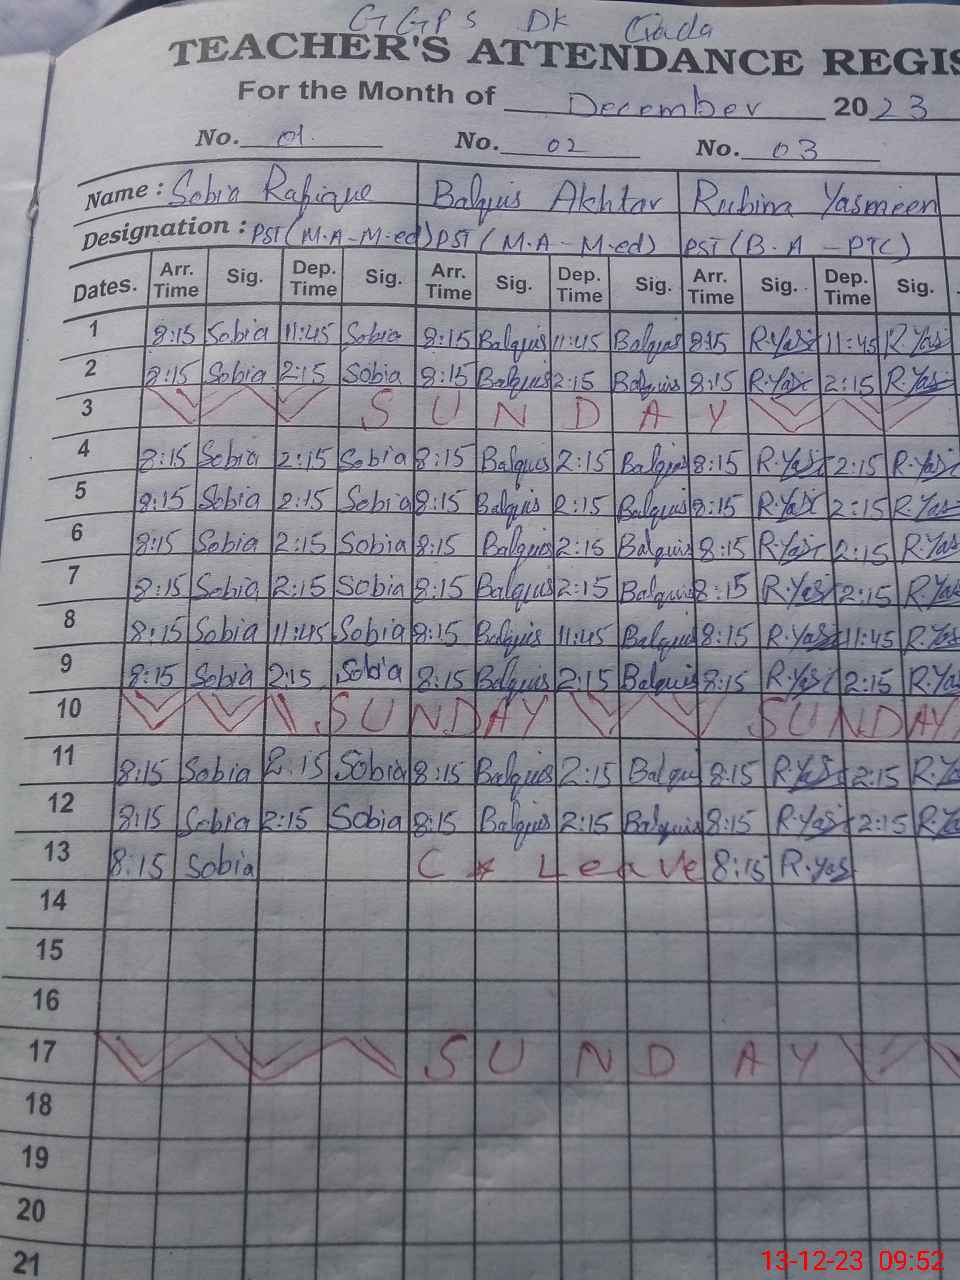 GGPS DK Gada
TEACHER'S ATTENDANCE REGIS
For the Month of December 2023
No. 01 No. 02 No. 03
Name : Sobia Rafique Balquis Akhtar Rubina Yasmeen
Designation : PST (M.A-M.ed) PST (M.A-M.ed) PST (B.A-PTC)
Dates. Arr. Time Sig. Dep. Time Sig. Arr. Time Sig. Dep. Time Sig. Arr. Time Sig. Dep. Time Sig.
1 8:15 Sobia 11:45 Sobia 8:15 Balquis 11:45 Balquis 8:15 R.Yas 11:45 R.Yas
2 8:15 Sobia 2:15 Sobia 8:15 Balquis 2:15 Balquis 8:15 R.Yas 2:15 R.Yas
3 SUNDAY
4 8:15 Sobia 2:15 Sobia 8:15 Balquis 2:15 Balquis 8:15 R.Yas 2:15 R.Yas
5 8:15 Sobia 2:15 Sobia 8:15 Balquis 2:15 Balquis 8:15 R.Yas 2:15 R.Yas
6 8:15 Sobia 2:15 Sobia 8:15 Balquis 2:15 Balquis 8:15 R.Yas 2:15 R.Yas
7 8:15 Sobia 2:15 Sobia 8:15 Balquis 2:15 Balquis 8:15 R.Yas 2:15 R.Yas
8 8:15 Sobia 11:45 Sobia 8:15 Balquis 11:45 Balquis 8:15 R.Yas 11:45 R.Yas
9 8:15 Sobia 2:15 Sobia 8:15 Balquis 2:15 Balquis 8:15 R.Yas 2:15 R.Yas
10 SUNDAY SUNDAY
11 8:15 Sobia 2:15 Sobia 8:15 Balquis 2:15 Balqu 8:15 R.Yas 2:15 R.Y
12 8:15 Sobia 2:15 Sobia 8:15 Balquis 2:15 Balquis 8:15 R.Yas 2:15 R.Ya
13 8:15 Sobia C * Leave 8:15 R.yas
14
15
16
17 SUNDAY
18
19
20
21
13-12-23 09:52